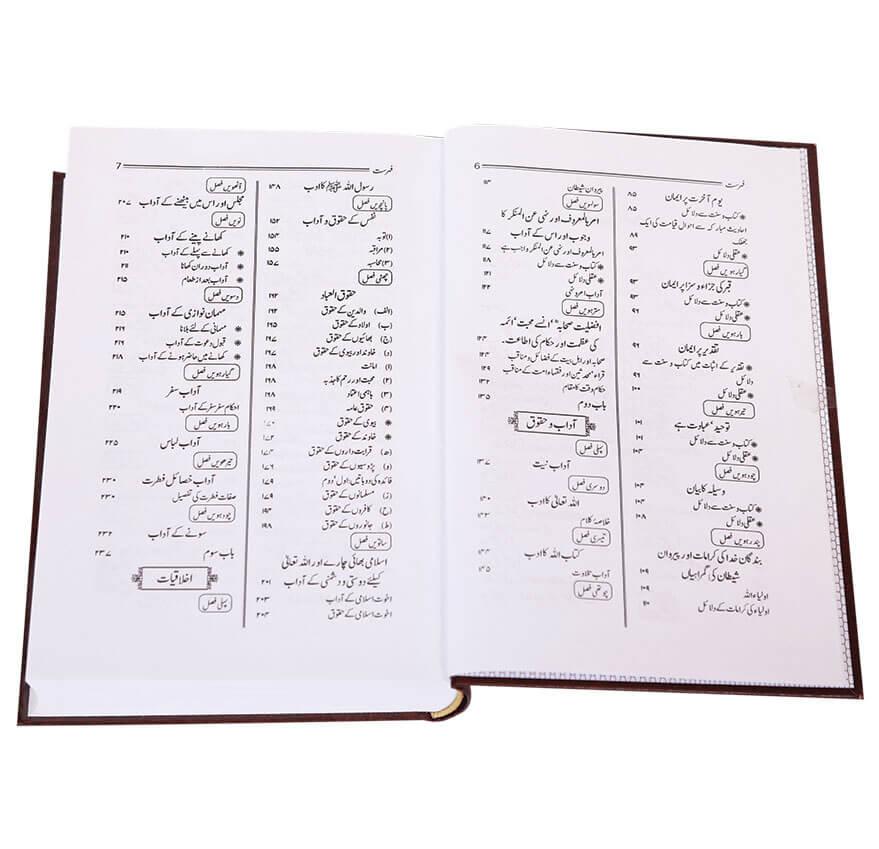 6 فہرست
یوم آخرت پر ایمان ۸۵
٭ کتاب و سنت سے دلائل ۸۵
احادیث مبارکہ سے احوال قیامت کی ایک
جھلک ۸۹
٭ عقلی دلائل ۹۳
گیارہویں فصل
قبر کی جزاء و سزا پر ایمان ۹۳
٭ کتاب و سنت سے دلائل ۹۳
٭ عقلی دلائل
بارہویں فصل
تقدیر پر ایمان ۹۷
٭ تقدیر کے اثبات میں کتاب و سنت سے
دلائل ۹۹
٭ عقلی دلائل ۱۰۰
تیرہویں فصل
توحید عبادت ہے ۱۰۱
٭ کتاب و سنت سے دلائل ۱۰۱
٭ عقلی دلائل ۱۰۳
چودہویں فصل
وسیلہ کا بیان ۱۰۳
٭ کتاب و سنت سے دلائل ۱۰۴
٭ عقلی دلائل ۱۰۸
پندرہویں فصل
بندگان خدا کی کرامات اور پیروان
شیطان کی گمراہیاں ۱۰۹
اولیاء اللہ ۱۰۹
اولیاء کی کرامات کے دلائل ۱۱۰
پیروان شیطان ۱۱۳
سولہویں فصل
امر بالمعروف اور نہی عن المنکر کا
وجوب اور اس کے آداب ۱۱۷
امر بالمعروف اور نہی عن المنکر واجب ہے ۱۱۷
٭ کتاب و سنت سے دلائل ۱۱۸
٭ عقلی دلائل ۱۲۱
آداب امر و نہی ۱۲۲
سترہویں فصل
افضلیت صحابہؓ انسے محبت ائمہ
کی عظمت اور حکام کی اطاعت۔ ۱۲۳
صحابہ اور اہل بیت کے فضائل و مناقب ۱۲۳
قراء محدثین اور فقہاء امت کے مناقب ۱۳۰
حکام وقت کا مقام ۱۳۲
باب دوم ۱۳۵
آداب و حقوق
پہلی فصل
آداب نیت ۱۳۷
دوسری فصل
اللہ تعالٰی کا ادب ۱۴۰
خلاصہ کلام ۱۴۳
تیسری فصل
کتاب اللہ کا ادب ۱۴۴
آداب تلاوت ۱۴۵
چوتھی فصل
فہرست 7
رسول اللہ ﷺ کا ادب ۱۴۸
پانچویں فصل
نفس کے حقوق و آداب ۱۵۲
(۱) توبہ ۱۵۴
(۲) مراقبہ ۱۵۵
(۳) محاسبہ ۱۵۷
چھٹی فصل
حقوق العباد ۱۹۲
(الف) والدین کے حقوق ۱۹۲
(ب) اولاد کے حقوق ۱۹۵
(ج) بھائیوں کے حقوق ۱۹۶
(د) خاوند اور بیوی کے حقوق ۱۹۷
۱ امانت ۱۹۸
۲ محبت اور رحم کا جذبہ ۱۹۸
(۳) باہمی اعتماد ۱۹۸
(۴) حقوق عامہ ۱۹۹
٭ بیوی کے حقوق ۱۷۰
٭ خاوند کے حقوق
(ھ) قرابت داروں کے حقوق ۱۷۴
(و) پڑوسیوں کے حقوق ۱۷۶
فائدہ کی دو باتیں: اول دوم
(ز) مسلمانوں کے حقوق
(ح) کافروں کے حقوق
(ط) جانوروں کے حقوق ۱۹۸
ساتویں فصل
اسلامی بھائی چارے اور اللہ تعالٰی
کیلئے دوستی و دشمنی کے آداب ۲۰۱
اخوت اسلامی کے آداب ۲۰۳
اخوت اسلامی کے حقوق ۲۰۴
آٹھویں فصل
مجلس اور اس میں بیٹھنے کے آداب ۲۰۷
نویں فصل
کھانے پینے کے آداب ۲۱۰
٭ کھانے سے پہلے کے آداب ۲۱۰
٭ آداب دوران کھانا ۲۱۱
٭ آداب بعد از طعام ۲۱۵
دسویں فصل
مہمان نوازی کے آداب ۲۱۵
٭ مہمانی کے لئے بلانا ۲۱۶
٭ قبول دعوت کے آداب ۲۱۶
٭ کھانے میں حاضر ہونے کے آداب ۲۱۸
گیارہویں فصل
آداب سفر ۲۱۹
احکام سفر سفر کے آداب ۲۲۰
بارہویں فصل
آداب لباس ۲۲۵
تیرھویں فصل
آداب خصائل فطرت ۲۳۰
صفات فطرت کی تفصیل ۲۳۰
چودہویں فصل
سونے کے آداب ۲۳۲
باب سوم ۲۳۷
اخلاقیات
پہلی فصل